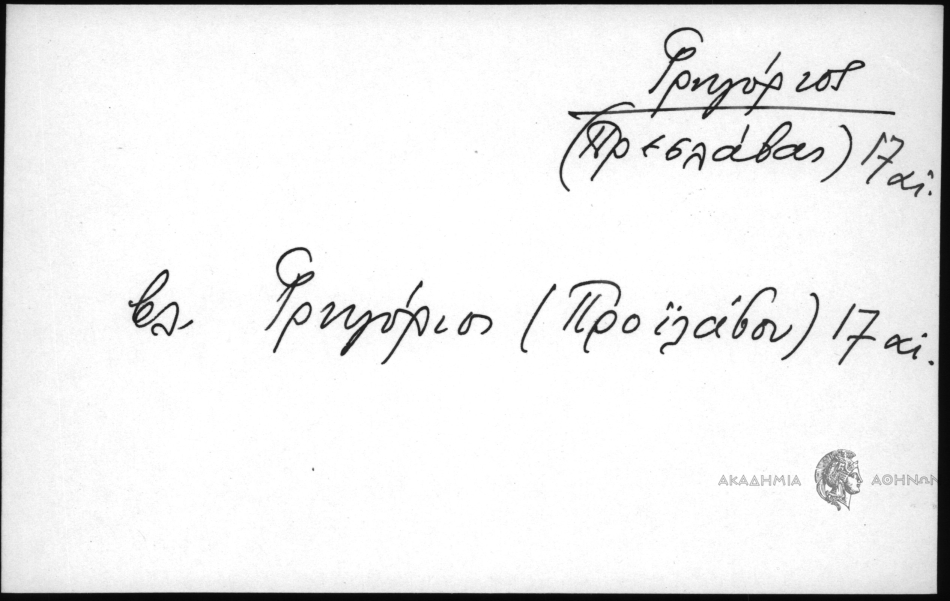 Γρηγόριος
(Πρεσλάβας) 17 αἰ.
βλ. Γρηγόριος (Προϊλάβου) 17 αἰ.
ΑΚΑΔΗΜΙΑ ΑΘΗΝΩΝ